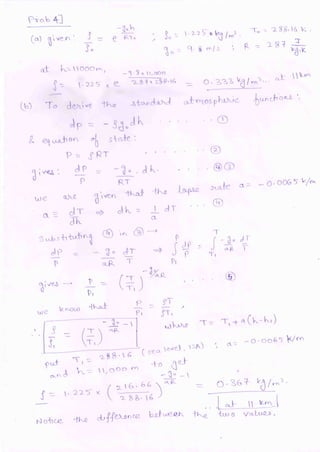 Prob 4]
(a) given: ρ/ρ₀ = e^(-g₀h/RT₀) ; ρ₀ = 1.225 kg/m³. T₀ = 288.16 K.
g₀ = 9.8 m/s ; R = 287 J/kg.K
at h=11000m,
ρ = 1.225 × e^(-9.8×11,000/287×288.16) = 0.333 kg/m³... at 11km
(b) To derive the standard atmospheric functions:
dp = -ρg₀dh ..... ①
& equation of state:
P = ρRT ..... ②
gives: dp/P = -g₀/RT . dh. ..... ③
we are given that the lapse rate a = -0.0065 K/m
a = dT/dh ⇒ dh = 1/a dT ... ④
Substituting ④ in ③ →
dp/P = -g₀/aR dT/T → ∫ dp/P = ∫ -g₀/aR dT/T
gives → P/P₁ = (T/T₁)^(-g₀/aR) ..... ⑤
we know that P/P₁ = ρT/ρ₁T₁
∴ ρ/ρ₁ = (T/T₁)^(-g₀/aR -1) where T = T₁+a(h-h₁)
put T₁ = 288.16 (sea level, ISA) ; a = -0.0065 K/m
and h = 11,000 m to get
ρ = 1.225 × (216.66/288.16)^(-g₀/aR -1) = 0.367 kg/m³.
at 11 km
Notice the difference between the two values.